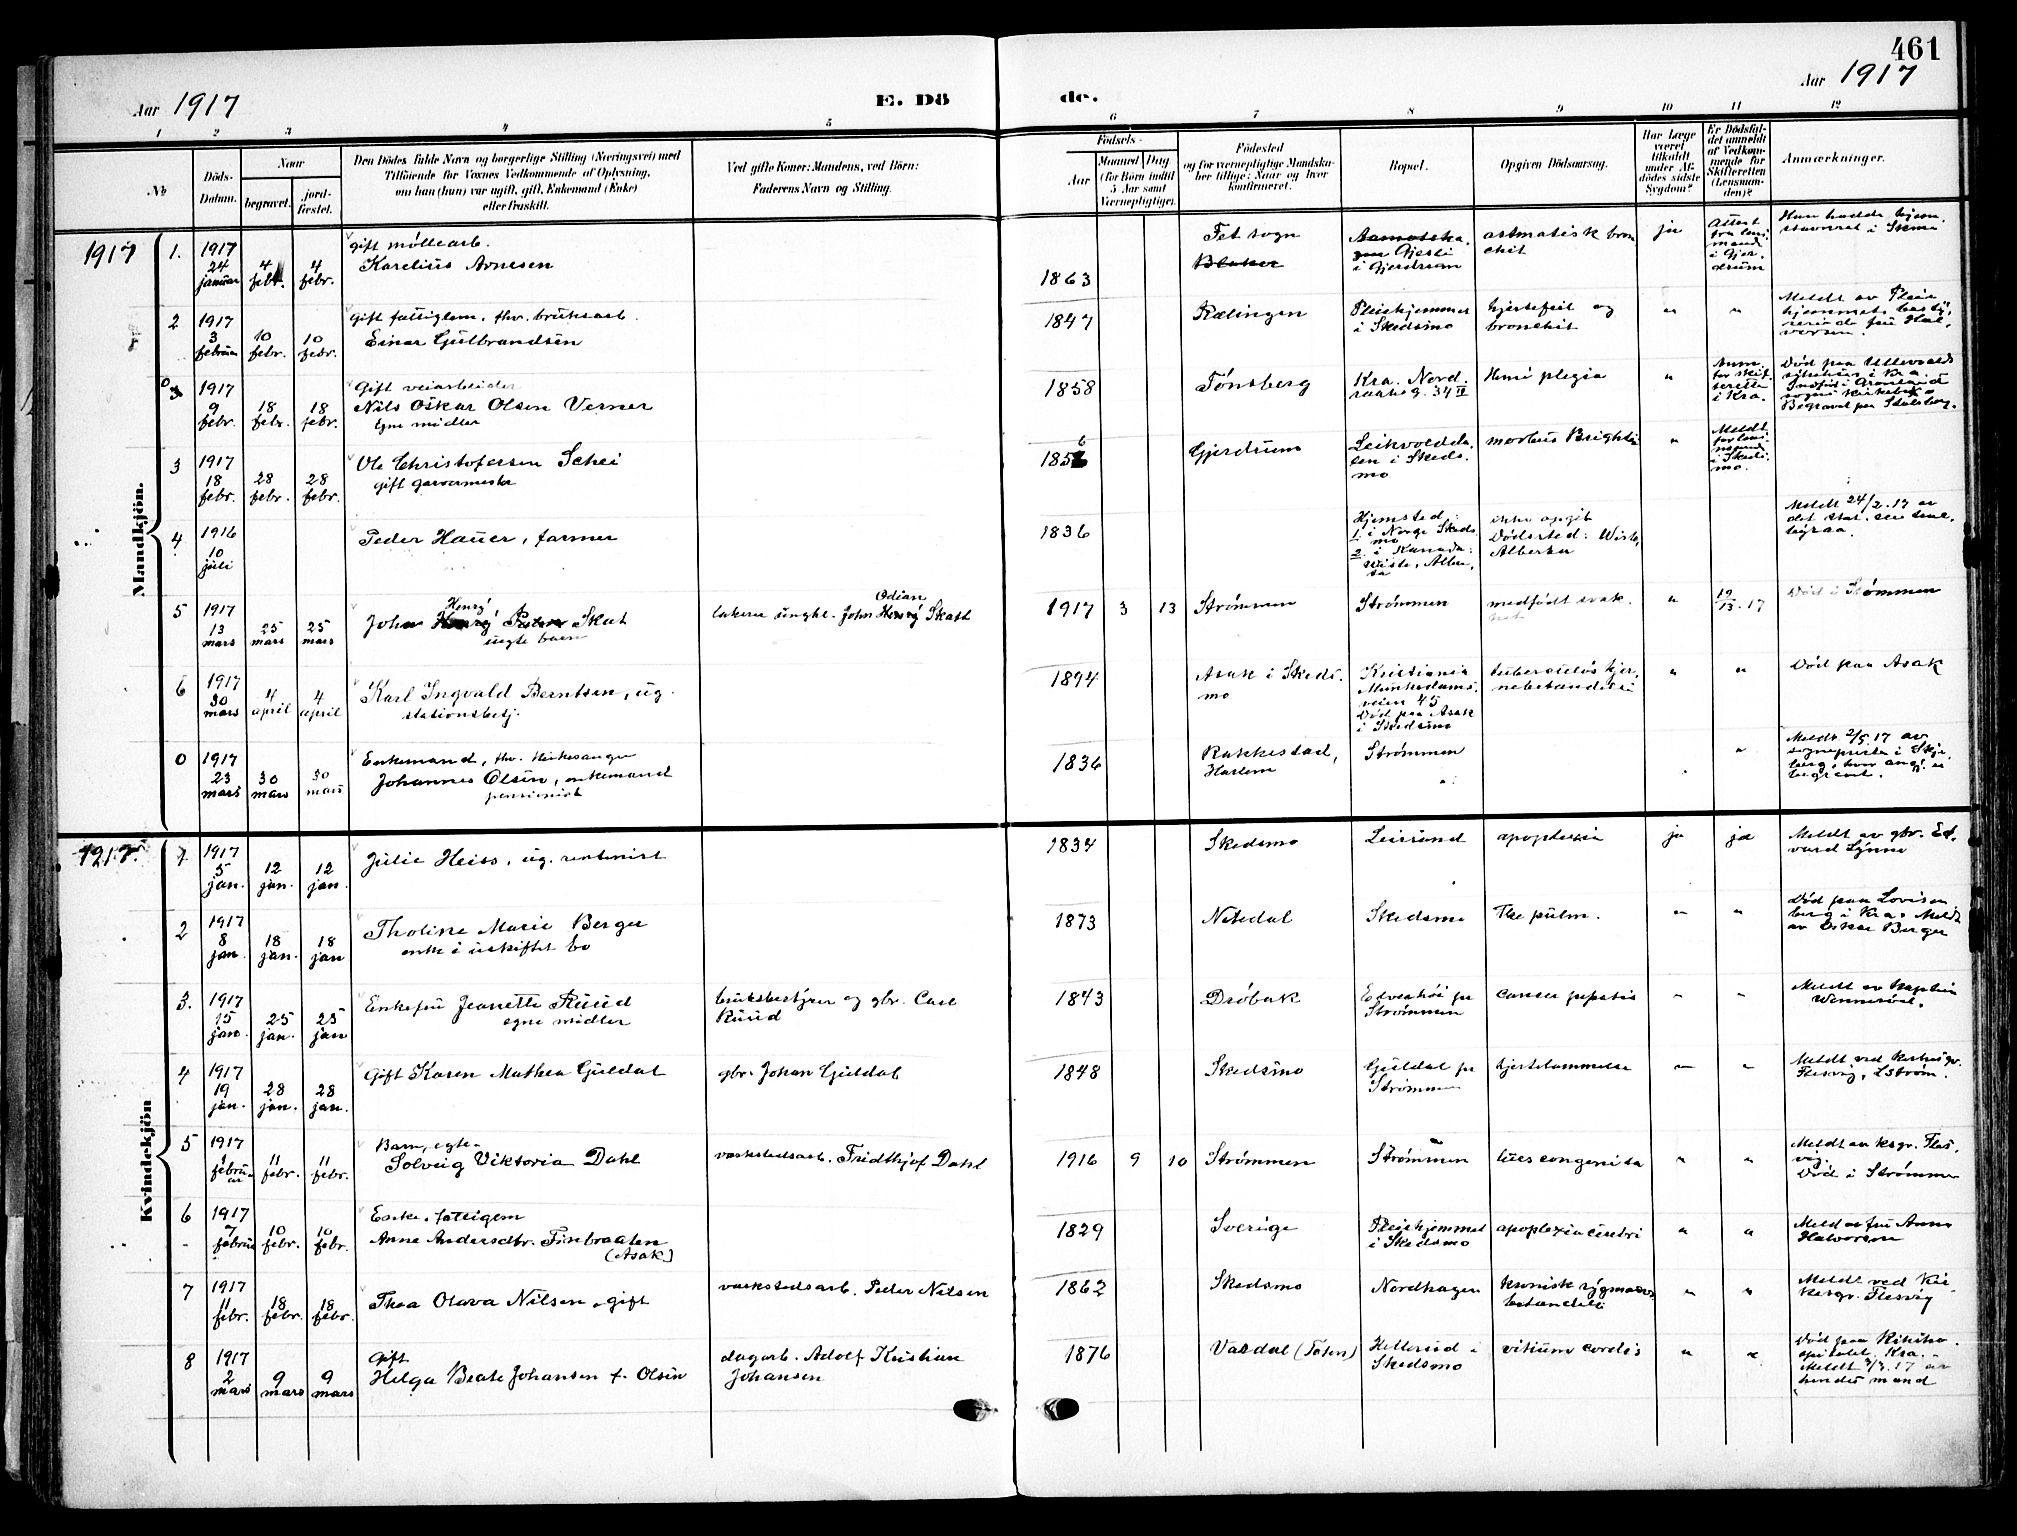 461
Aar 1917
E. Dö
de.
Aar 1917
1 2 3 4 5 6 7 8 9 10 11 12
No
Döds-
Datum.
Naar
begravet.
jord-
fæstet.
Den Dödes fulde Navn og borgerlige Stilling (Næringsvei) med
Tilföiende for Voxnes Vedkommende af Oplysning,
om han (hun) var ugift, gift, Enkemand (Enke)
eller fraskilt.
Ved gifte Koner: Mandens, ved Börn:
Faderens Navn og Stilling.
Födsels-
Aar
Maaned
Dag
(for Börn indtil
5 Aar samt
Værnepligtige).
Födested
og for værnepligtige Mandska-
ber tillige: Naar og hvor
konfirmeret.
Bopæl.
Opgiven Dödsaarsag.
Har Læge
været
tilkaldt
under Af-
dödes sidste
Sygdom?
Er Dödsfal-
det anmeldt
af Vedkom-
mende for
Skifteretten
(Lensman-
den)?
Anmærkninger.
Mandkjön.
1917
1.
1917
24
januar
4
febr.
4
febr.
gift møllearb.
Karelius Arnesen
1863
Fet sogn
Blaker
Gjesti
i Gjerdrum
astmatisk bron
chit
ja
Attest
fra lens
mand
i Gjer
drum
Han hadde hjem
stavnret i Skmo
2
1917
3
februar
10
febr.
10
febr.
gift fattiglem, fhv. bruksarb.
Einar Gulbrandsen
1847
Rælingen
Pleiehjemmet
i Skedsmo
hjertefeil og
bronchit
"
"
Meldt av Pleie
hjemmets besty,
rerinde fru Hal,
vorsen
0
3
1917
9
febr.
18
febr.
18
febr.
Gift veiarbeider
Nils Oskar Olsen Verner
Egne midler
1858
Tønsberg
Kra. Nord.
raaksg. 34 IV
Hemiplegia
"
Anm
for skif
teretten
i Kra.
Død paa Ullevaals
sykehus i Kra.
Indført i Grønland
sogns kirkebok
Begravet paa Stalsberg.
3
1917
18
febr.
28
febr.
28
febr.
Ole Christofersen Schei
gift garvermester
1856
Gjerdrum
Leikvoldda,
len i Skeds.
mo
morbus Brighti
"
Meldt
for lens
mand
i Skeds,
mo.
4
1916
10
juli
Peder Hauer, farmer
1836
Hjemsted:
1. i Norge Skeds
mo
2. i Kanada:
Wiste, Alber,
ta
ikke opgit
Dødsted: Wiste,
Alberta
Meldt 24/2. 17 av
det stat. sentral
byraa.
5
1917
13
mars
25
mars
25
mars
Henry
John Skat
uegte barn
Odian
lakerer ungkl. John Henry Skatt
1917
3
13
Strømmen
Strømmen
medfødt svak.
het
"
19/13. 17
Død i Strømmen
6
1917
30
mars
4
april
4
april
Karl Ingvald Berntsen, ug.
stationsbetj.
1894
Asak i Skeds.
mo
Kristiania
Munkedams,
veien 45
Død paa Asak
i Skedsmo
tuberculøs hjer,
nebetændelse
"
"
Død paa Asak
0
1917
23
mars
30
mars
30
mars
Enkemand, fhv. kirkesanger
Johannes Olsen, enkemand
pensionist
1836
Rakkestad,
Harlem
Strømmen
"
Meldt 2/5 17 av
sogneprest i Skje
berg, hvor angj. er
begravet.
Kvindekjön
1917
1.
1917
5
jan.
12
jan.
12
jan.
Julie Heiss, ug. rentenist
1834
Skedsmo
Leirsund
apoplexia
ja
ja
Meldt av gbr. Ed,
vard Lynne
2
1917
8
jan.
18
jan.
18
jan
Tholine Marie Berger
enke i uskiftet bo
1873
Nitedal
Skedsmo
Tbc pulm.
"
"
Død paa Lovisen
berg i Kra. Meldt
av Oskar Berger
3.
1917
15
jan.
25
jan.
25
jan
Enkefru Jeanette Ruud
egne midler
bruksbestyrer og gbr. Carl
Ruud
1843
Drøbak
Edvardhøi pr
Strømmen
cancer hepatis
"
"
Meldt av kaptein
Wennersøe.
4
1917
19
jan.
28
jan.
28
jan.
Gift Karen Mathea Guldal
gbr. Johan Guldal
1848
Skedsmo
Guldal pr
Strømmen
hjertelammelse
"
"
Meldt ved kirkesgr.
Flesvig, LStrøm.
5
1917
1
febru
ar
11
febr.
11
febr.
Barn, egte
Solveig Viktoria Dahl
verkstedsarb. Fridthjof Dahl
1916
9
10
Strømmen
Strømmen
lues congenita
"
"
Meldt av ksgr. Fles,
vig.
Død i Strømmen
6
1917
7
februar
10
febr.
10
febr.
Enke, fattiglem
Anne Andersdtr. Finbraaten
(Asak)
1829
Sverige
Pleiehjemmet
i Skedsmo
apoplexia cerebri
"
"
Meld av fru Anna
Halvorsen
7
1917
11
febr.
18
febr.
18
febr.
Thea Olava Nilsen, gift
verkstedsarb. Peder Nilsen
1862
Skedsmo
Nordhagen
kronisk rygmarvs
betændelse
"
"
Meldt ved kir
kesgr. Flesvig
8
1917
2
mars
9
mars
9
mars
Gift
Helga Beate Johansen f. Olsen
dagarb. Adolf Kristian
Johansen
1876
Vardal (Toten)
Hellerud i
Skedsmo
vitium cordis
"
"
Død paa Rikshos.
spitalet, Kra.
Meldt 5/3. 17 av
hendes mand